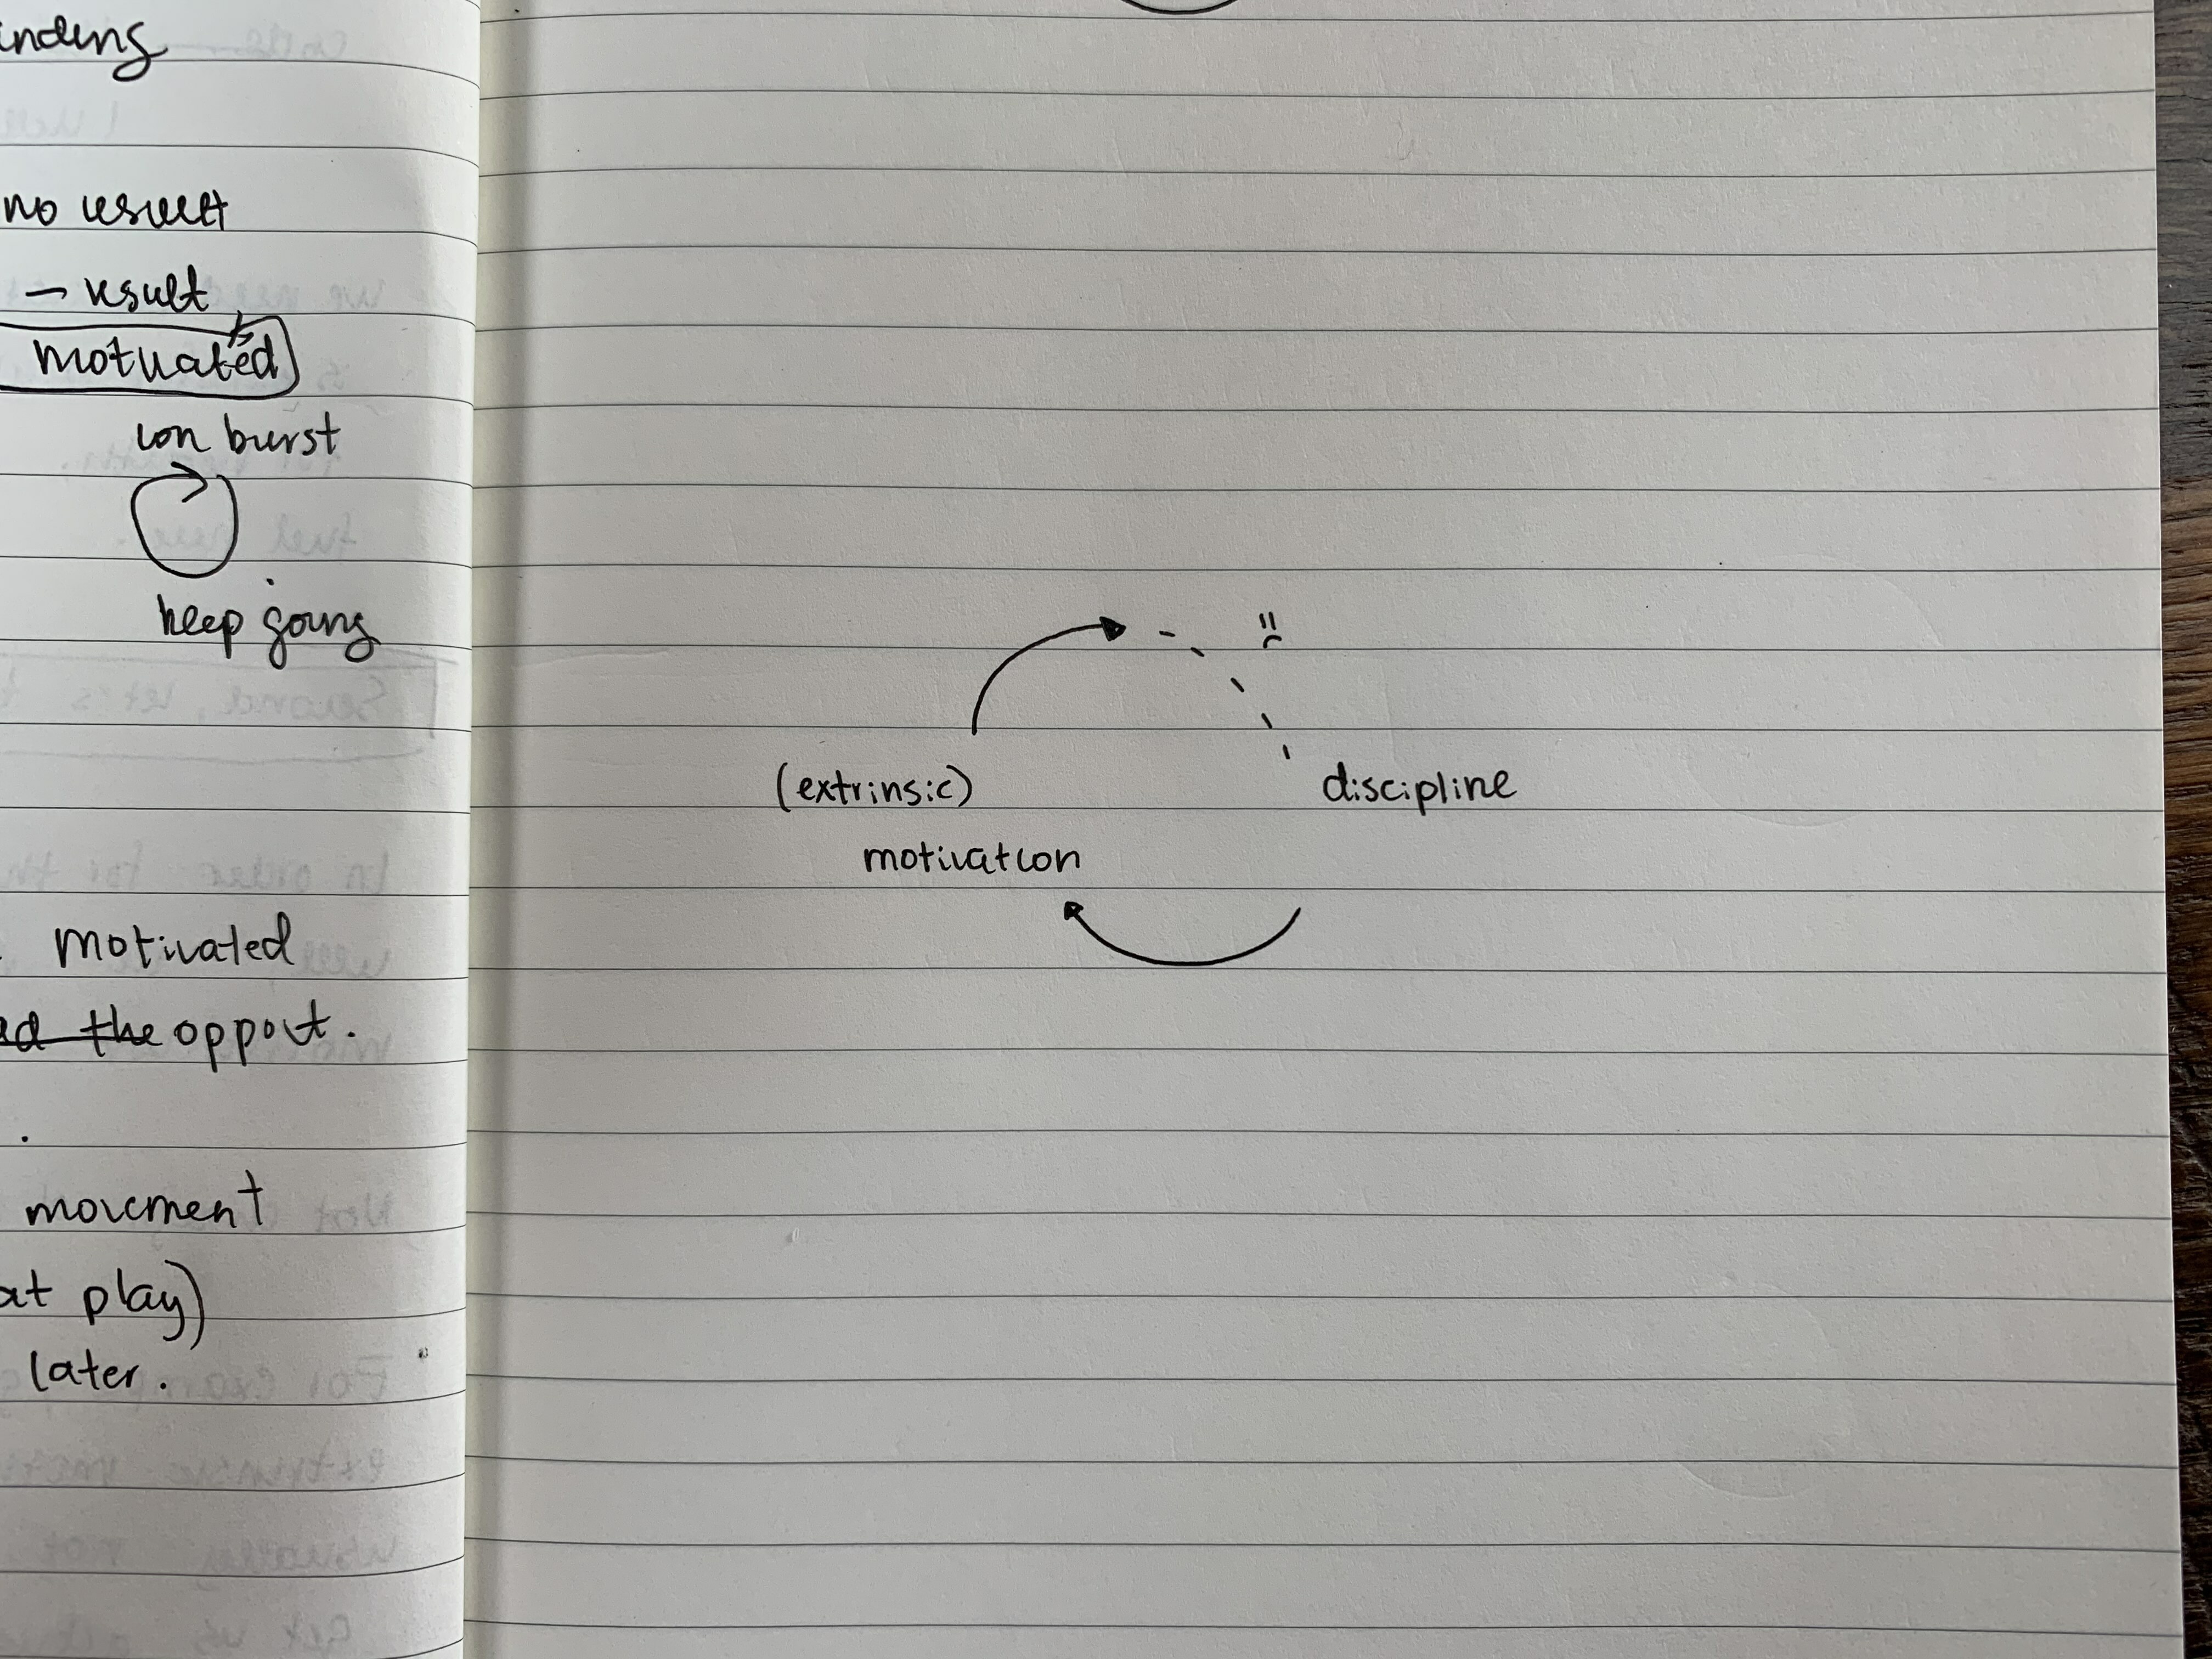 no result
– result
motivated
burst
keep going
motivated
the oppost.
movement
at play)
later.
(extrinsic)
discipline
motivation